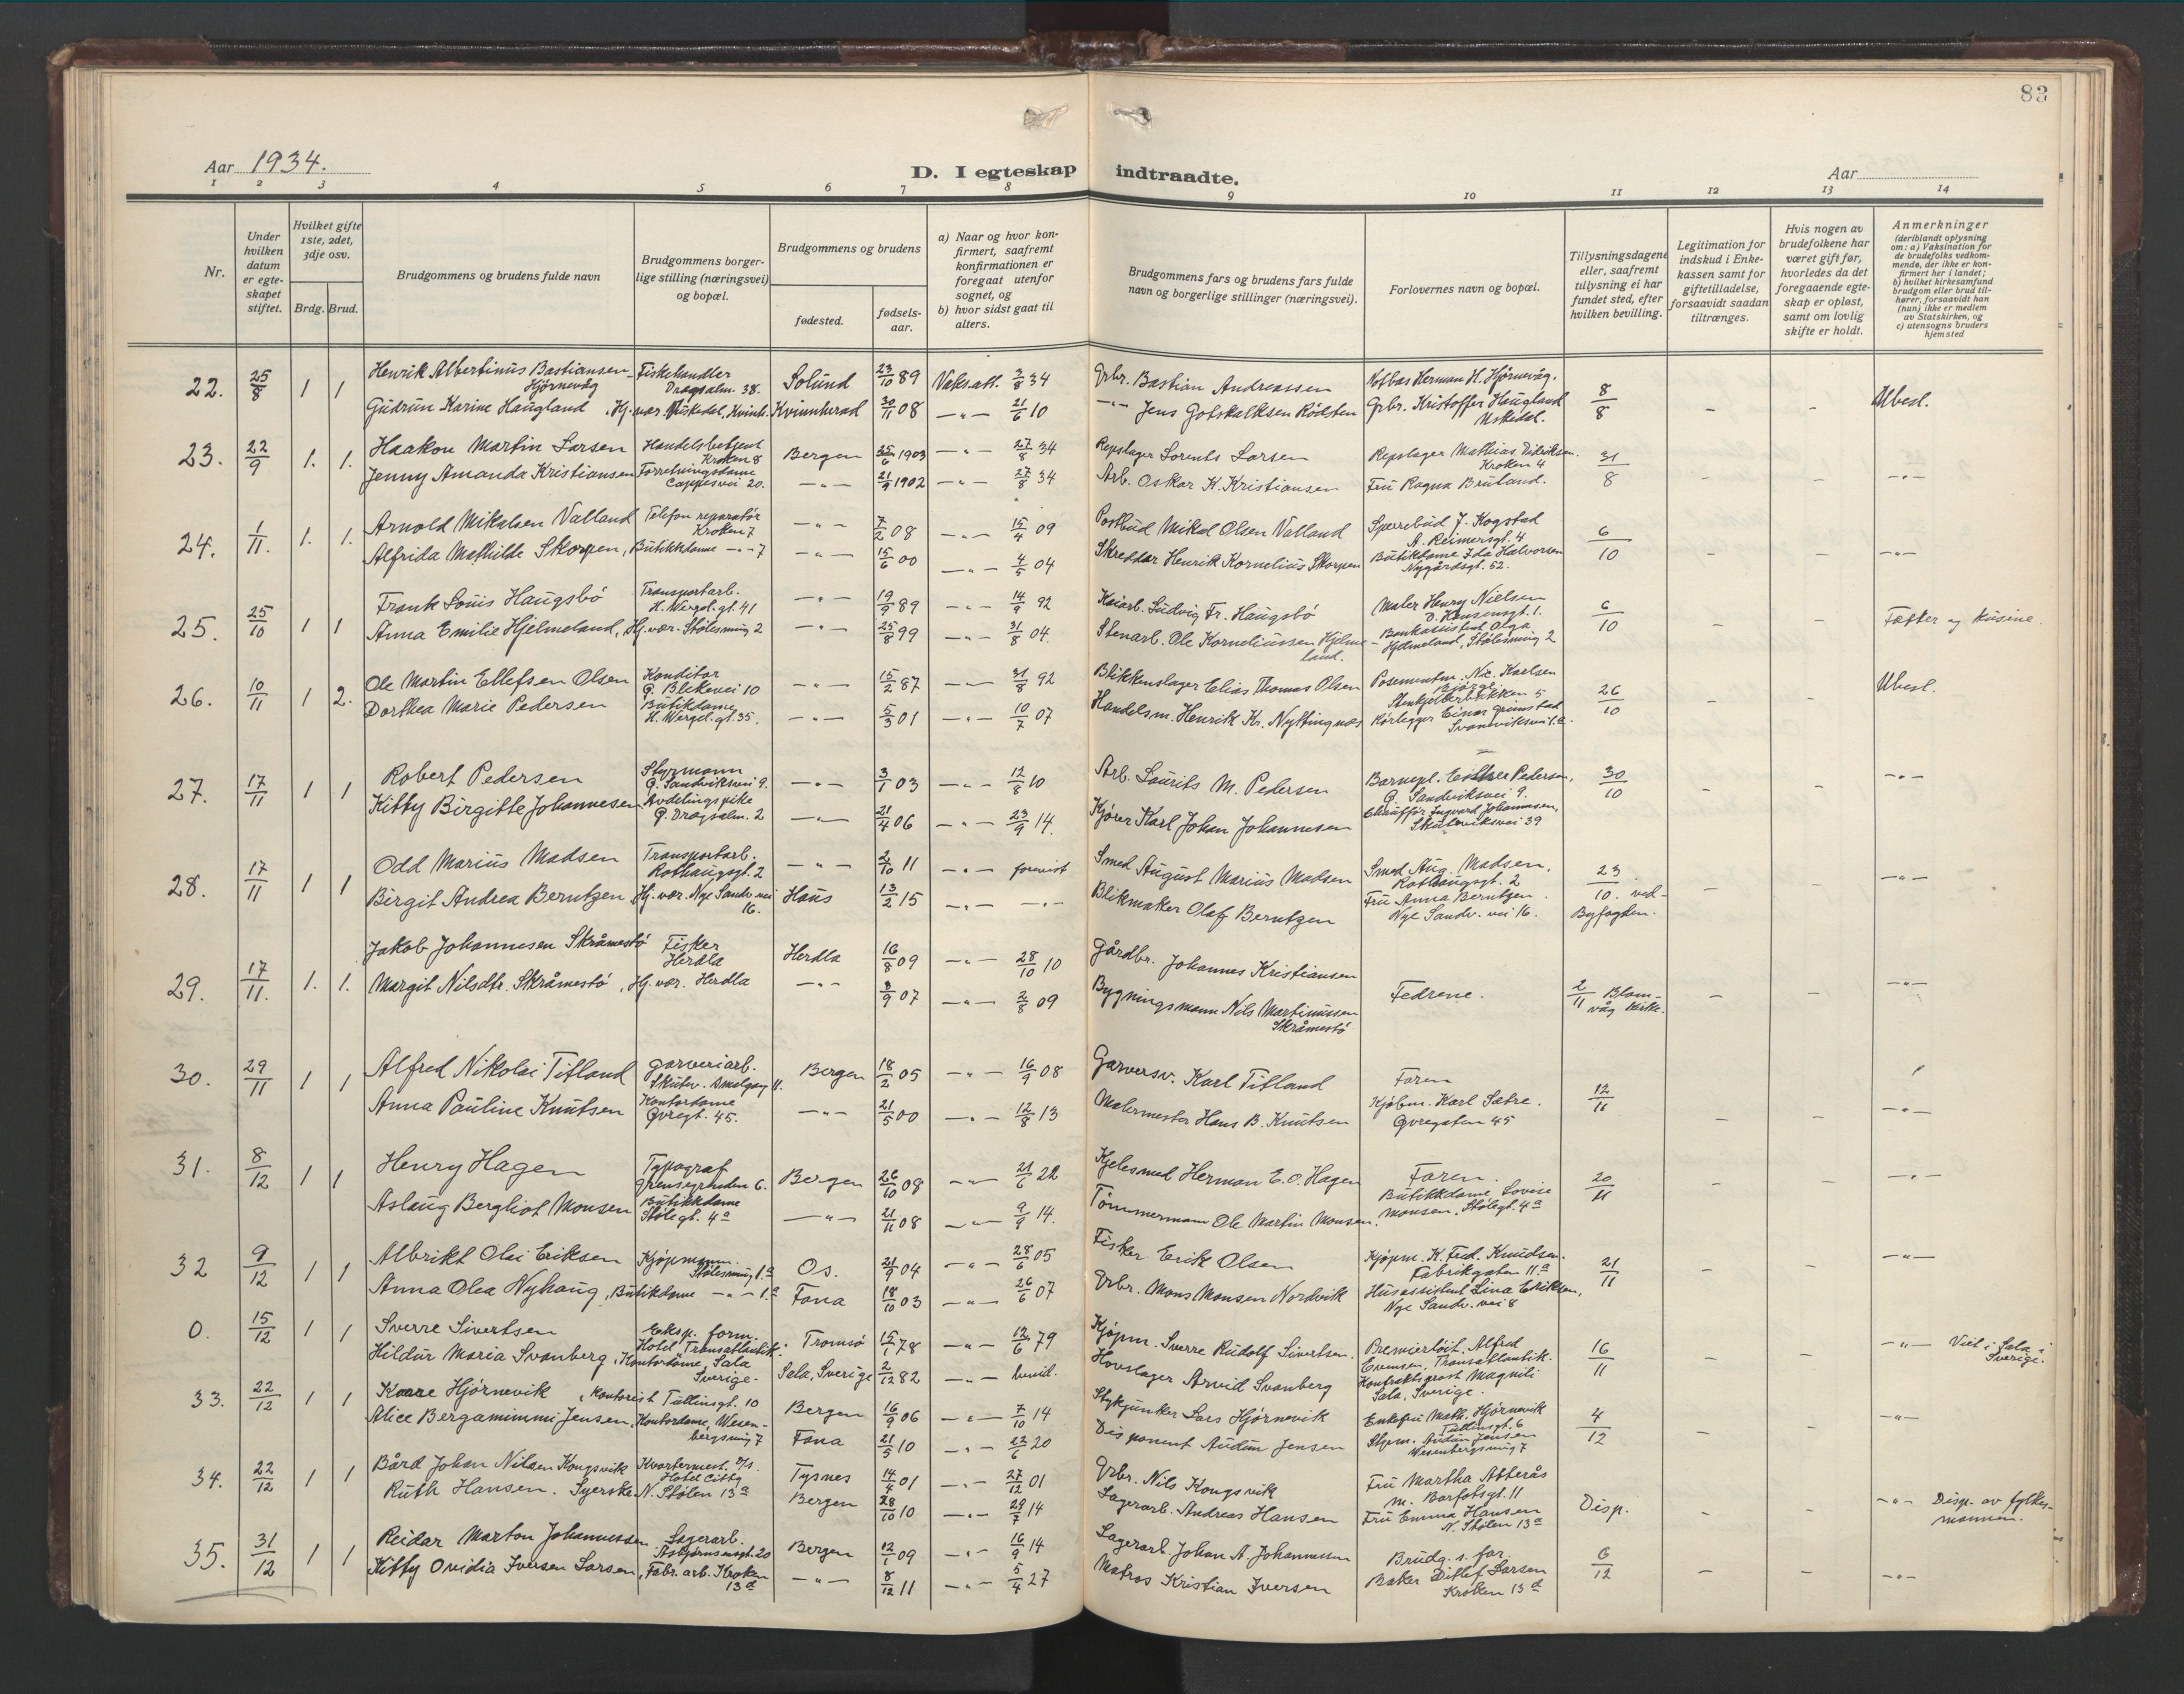 83
Aar 1934.
D. I egteskap indtraadte.
Aar
1 2 3 4 5 6 7 8 9 10 11 12 13 14
Nr.
Under hvilken datum er egte-skapet stiftet.
Hvilket gifte 1ste, 2det, 3dje osv.
Brdg. Brud.
Brudgommens og brudens fulde navn
Brudgommens borger-lige stilling (næringsvei) og bopæl.
Brudgommens og brudens
fødested.
fødsels-aar.
a) Naar og hvor kon-firmert, saafremt konfirmationen er foregaat utenfor sognet, og
b) hvor sidst gaat til alters.
Brudgommens fars og brudens fars fulde navn og borgerlige stillinger (næringsvei).
Forlovernes navn og bopæl.
Tillysningsdagene eller, saafremt tillysning ei har fundet sted, efter hvilken bevilling.
Legitimation for indskud i Enke-kassen samt for giftetilladelse, forsaavidt saadan tiltrænges.
Hvis nogen av brudefolkene har været gift før, hvorledes da det foregaaende egte-skap er opløst, samt om lovlig skifte er holdt.
Anmerkninger (deriblandt oplysning om: a) Vaksination for de brudefolks vedkom-mende, der ikke er kon-firmert her i landet; b) hvilket kirkesamfund brudgom eller brud til-hører, forsaavidt han (hun) ikke er medlem av Statskirken, og c) utensogns bruders hjemsted
22. 25/8 1 1 Henrik Albertinus Bastiansen Hjørnevåg Fiskehandler Dragsalm. 38. Solund 23/10 89 Vaks.att. 3/8 34 Grbr. Bastian Andreassen Notbas Herman H. Hjørnevåg. 8/8 Ubesl.
Gudrun Karine Haugland Hj.vær. Uskedal, Kvinnh. Kvinnherad 30/11 08 -"- 21/6 10 -"- Jens Gotskalksen Rödsten Grbr. Kristoffer Haugland Uskedal.
23. 22/9 1. 1. Haakon Martin Larsen Handelsbetjent Kroken 8 Bergen 25/6 1903 -"- 27/8 34 Repslager Lorents Larsen Repslager Mathias Didriksen. Kroken 4 31/8 -"-
Jenny Amanda Kristiansen Forretningsdame Cappesvei 20. -"- 21/9 1902 -"- 27/8 34 Arb. Oskar K. Kristiansen Fru Ragna Bruland.
24. 1/11. 1. 1. Arnold Mikalsen Valland Telefon reparatör Kroken 7 -"- 7/2 08 -"- 15/4 09 Postbud Mikal Olsen Valland Sperrebud J. Kogstad A. Reimersgt. 4 6/10 -"-
Alfrida Mathilde Skorpen, Butikkdame -"- 7 -"- 15/6 00 -"- 4/5 04 Skreddar Henrik Kornelius Skorpen Butikdame Ida Halvorsen Nygårdsgt. 52.
25. 25/10 1 1 Frank Louis Haugsbö Transportarb. H. Wergel. gt. 41 -"- 19/9 89 -"- 14/9 92 Kaiarb. Ludvig Fr. Haugsbö Maler Henry Nielsen D. Hansensgt. 1. 6/10 Fetter og kusine.
Anna Emilie Hjelmeland, Hj.vær. Stölesmug 2 -"- 25/8 99 -"- 31/8 04. Stenarb. Ole Korneliussen Hjelmeland. Bankassistent Olga Hjelmeland, Stölesmug 2
26. 10/11 1 2. Ole Martin Ellefsen Olsen Konditor G. Blekevei 10 -"- 15/2 87 -"- 31/8 92 Blikkenslager Elias Thomas Olsen Posementm. Nx. Karlsen 26/10 Ubesl.
Dorthea Marie Pedersen Butikdame H. Wergel. gt. 35. -"- 5/3 01 -"- 10/7 07 Handelsm. Henrik Kr. Nyttingnes Rörlegger Einar Grimstad Svaneviksvei
27. 17/11 1 1 Robert Pedersen Styrmann G. Sandviksvei 9. -"- 3/1 03 -"- 12/8 10 Arb. Laurits M. Pedersen Barnepl. Esther Pedersen, G. Sandviksvei 9. 30/10 -"-
Kitty Birgitte Johannesen Avdelingspike G. Dragsalm. 2 -"- 21/4 06 -"- 23/9 14. Kjører Karl Johan Johannesen Chauffør Ingvard Johannesen, Skuteviksvei 39
28. 17/11 1 1 Odd Marius Madsen Transportarb. Rothaugsgt. 2 -"- 2/10 11 -"- forevist Smed August Marius Madsen Smed Aug. Madsen, Rothaugsgt. 2 23/10 ved Byfogden. -"-
Birgit Andrea Berntzen Hj.vær. Nye Sandv. vei 16. Haus 13/2 15 -"- -"- Blikmaker Olaf Berntzen Fru Anna Berntzen. Nye Sandv. vei 16.
29. 17/11. 1. 1. Jakob Johannesen Skråmestö Fisker Herdla Herdla 16/8 09 -"- 28/10 10 Gårdbr. Johannes Kristiansen Fedrene. 2/11 Blomvåg kirke. -"-
Margit Nilsdtr. Skråmestö, Hj.vær. Herdla -"- 3/9 07 -"- 2/8 09 Bygningsmann Nils Martinussen Skråmestö
30. 29/11 1 1 Alfred Nikolai Titland Garveriarb. Skutev. Smalgang 11. Bergen 18/2 05 -"- 16/9 08 Garversv. Karl Titland Faren 12/11 -"-
Anna Pauline Knutsen Kontordame Øvregt. 45. -"- 21/5 00 -"- 12/8 13 Malermester Hans B. Knutsen Kjöbm. Karl Sætre. Øvregaten 45
31. 8/12 1 1 Henry Hagen Typograf Grensegrenden 6. Bergen 26/10 08 -"- 21/6 22 Kjelesmed Herman E. O. Hagen Faren. 20/11 -"-
Aslaug Bergliot Monsen Butikkdame Stölegt. 4a -"- 21/11 08 -"- 9/9 14. Tömmermann Ole Martin Monsen. Butikkdame Lovise Monsen, Stölegt. 4a
32 9/12 1 1 Albrikt Olai Eriksen Kjøpmann. Stölesmug 1a Os. 21/9 04 -"- 28/6 05 Fisker Erik Olsen Kjøpm. K. Fred. Knudsen. Fabrikgaten 11a 21/11 -"-
Anna Olea Nyhaug, Butikdame -"- 1a Fana 18/10 03 -"- 26/6 07 Grbr. Mons Monsen Nordvik Husassistent Lina Eriksen, Nye Sandv. vei 8
0. 15/12 1 1 Sverre Sivertsen Eksp. form. Hotel Transatlantik. Tromsö 15/1 78 -"- 12/6 79 Kjøpm. Sverre Rudolf Sivertsen. Premierløit. Alfred Evensen, Transatlantik. 16/11 -"- Viet i Sala i Sverige.
Hildur Maria Svanberg, Kontordame, Sala Sverige. Sala, Sverige 2/12 82 -"- bevid. Hovslager Arvid Svanberg Kontraktsprost Magnili Sala, Sverige.
33. 22/12 1 1 Kaare Hjörnevik, Kontorist Tullinsgt. 10 Bergen 16/9 06 -"- 7/10 14 Stykjunker Lars Hjörnevik Enkefru Math. Hjörnevik Tullinsgt. 6 4/12 -"-
Alice Bergamimmi Jensen, Kontordame, Wesenbergsmug 7 Fana 21/5 10 -"- 22/6 20 Disponent Audun Jensen Skpm. Audun Jensen Wesenbergsmug 7
34. 22/12 1 1 Bård Johan Nilsen Kongsvik Kvartermest. Hotel City Tysnes 14/4 01 -"- 27/12 01 Grbr. Nils Kongsvik Fru Martha Atterås M. Barfotsgt. 11 Disp. -"- Disp. av fylkesmannen.
Ruth Hansen. Syerske. N. Stölen 13a Bergen 28/10 10 -"- 29/7 14 Lagerarb. Andreas Hansen Fru Emma Hansen N. Stölen 13a
35. 31/12 1 1 Reidar Marton Johannessen, Lagerarb. Asbjørnsensgt. 20 Bergen 12/1 09 -"- 16/9 14 Lagerarb. Johan A. Johannessen Brudg. s. far. 6/12 -"-
Kitty Ovidia Iversen Larsen, Fabr. arb. Kroken 13d -"- 8/12 11 -"- 5/4 27 Matros Kristian Iversen Baker Ditlef Larsen Kroken 13d